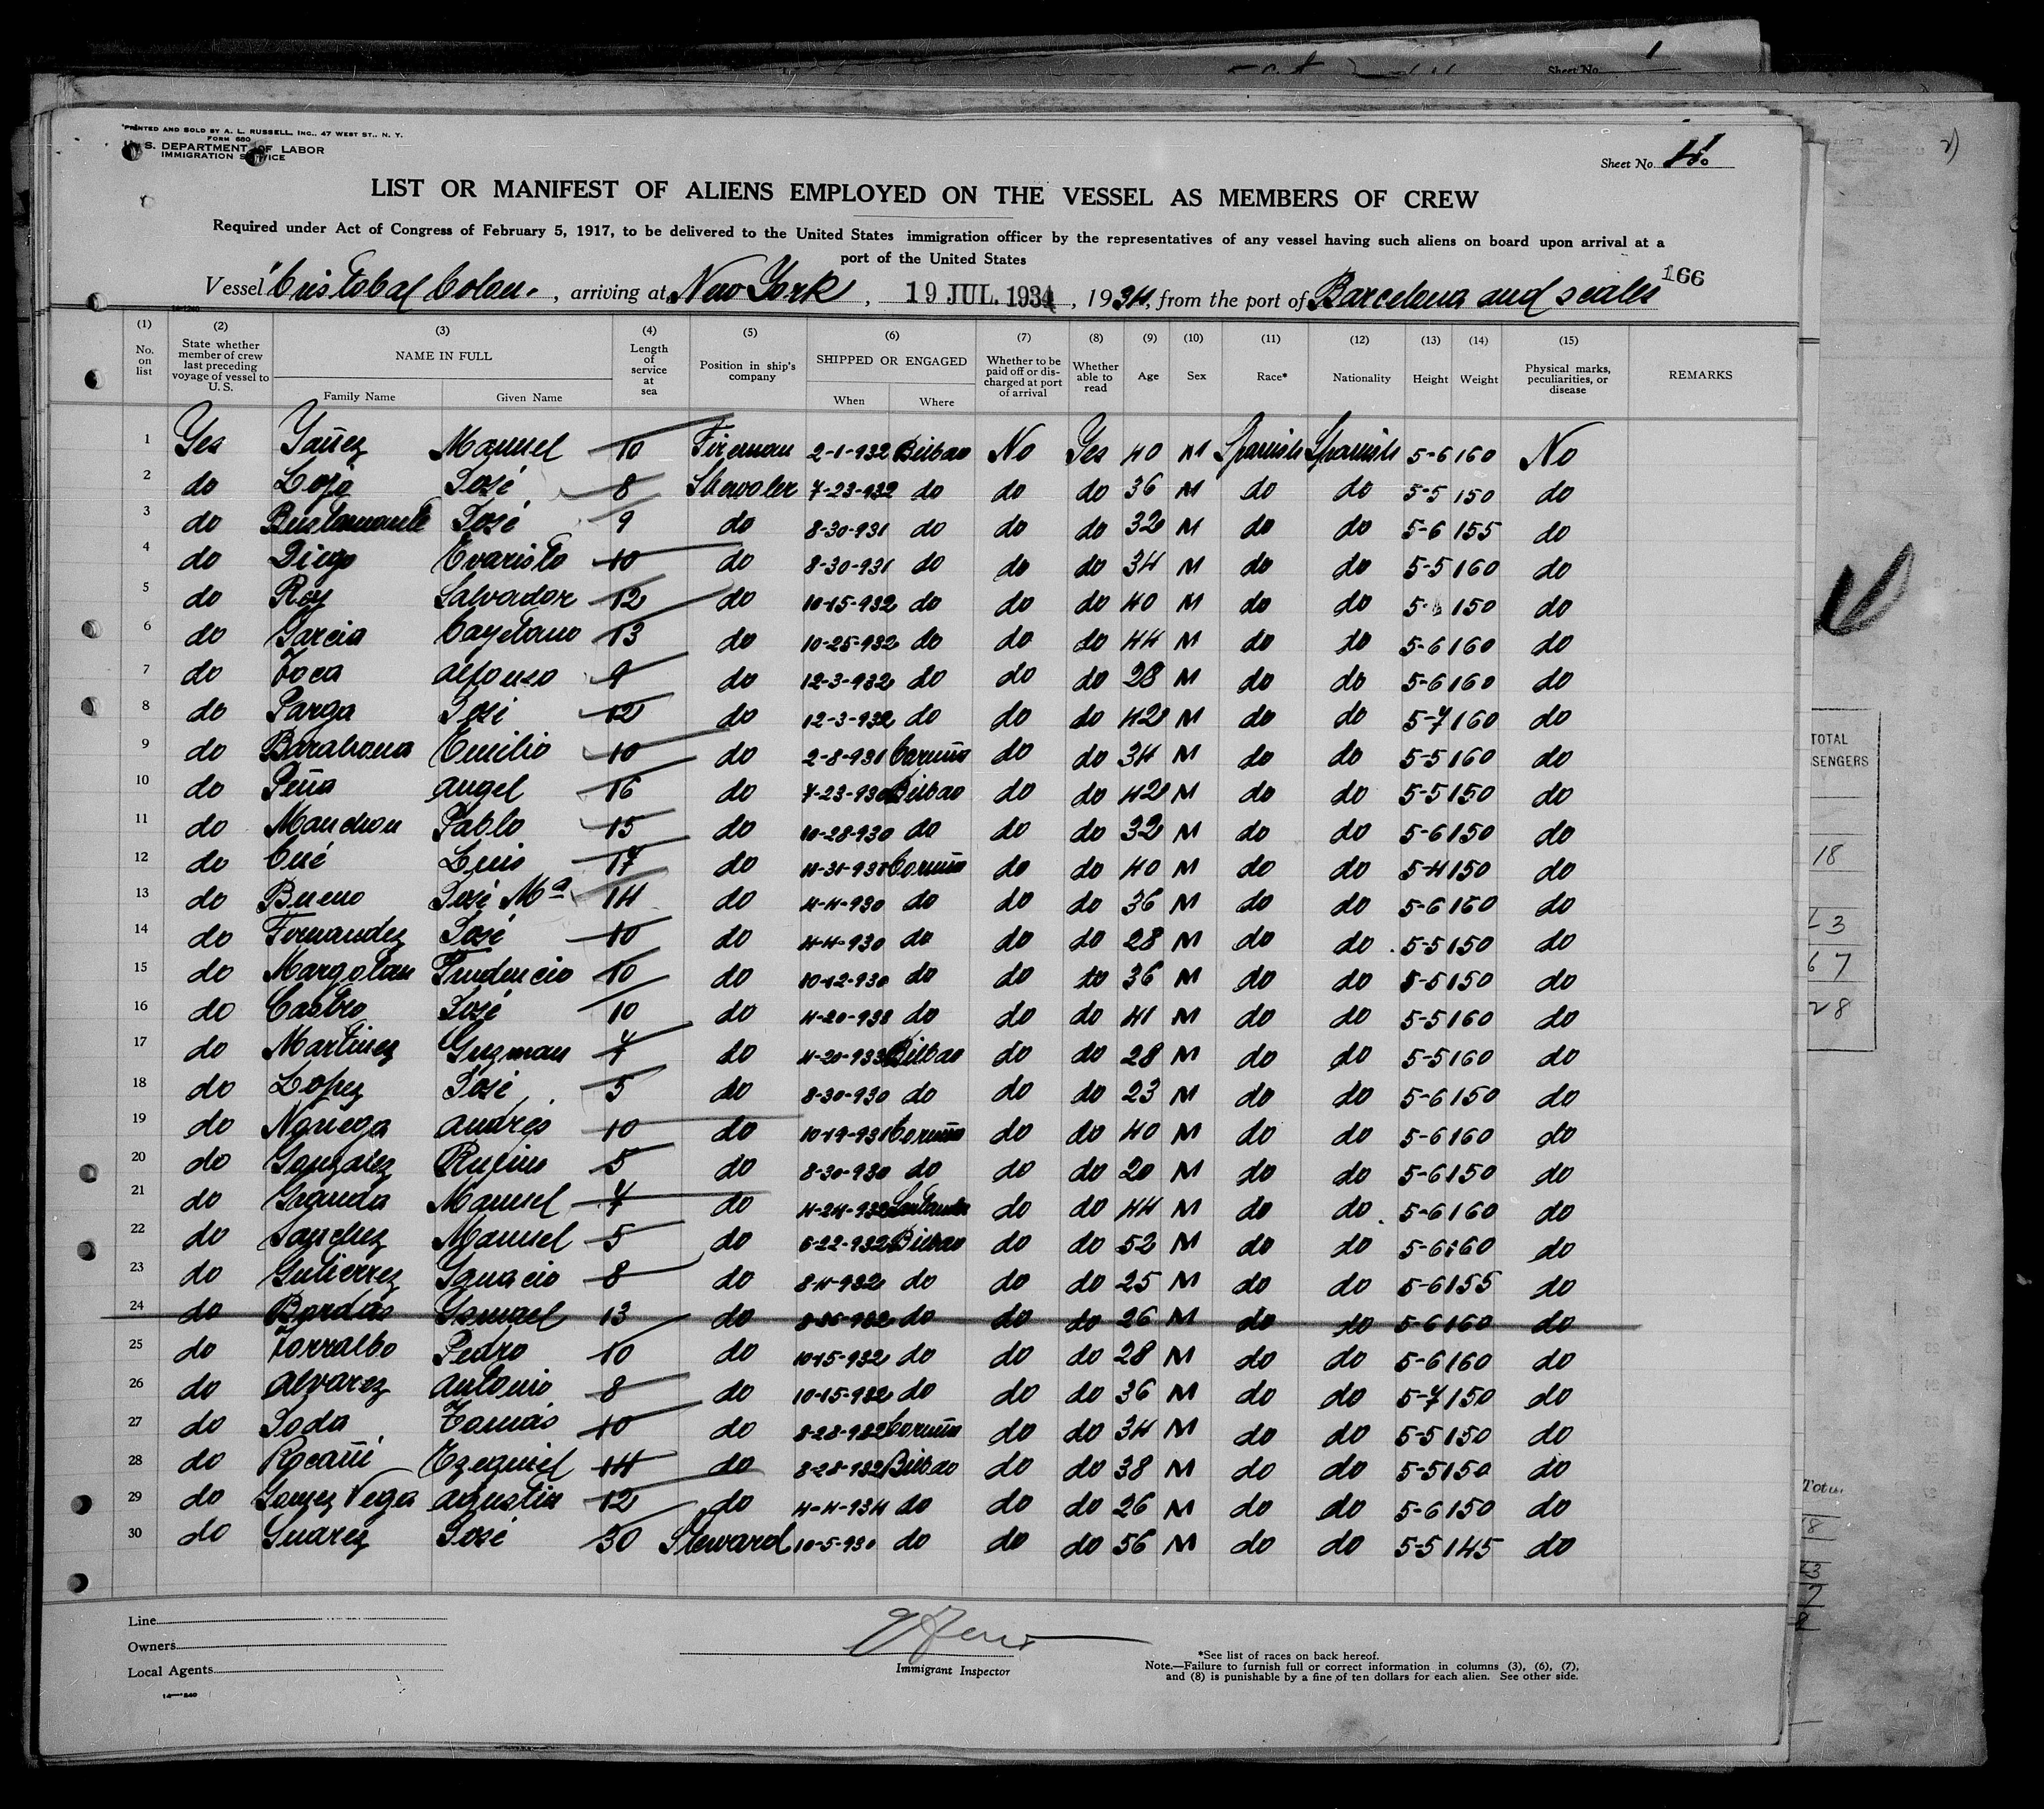 Sheet No. 1
"PRINTED AND SOLD BY A. L. RUSSELL, INC., 47 WEST ST., N. Y.
FORM 680
U. S. DEPARTMENT OF LABOR
IMMIGRATION SERVICE
Sheet No.
LIST OR MANIFEST OF ALIENS EMPLOYED ON THE VESSEL AS MEMBERS OF CREW
Required under Act of Congress of February 5, 1917, to be delivered to the United States immigration officer by the representatives of any vessel having such aliens on board upon arrival at a
port of the United States
166
Vessel "Cristobal Colon. , arriving at New York , 19 JUL. 1934 , 1934, from the port of Barcelona and scales
(1) (2) (3) (4) (5) (6) (7) (8) (9) (10) (11) (12) (13) (14) (15)
No. on list State whether member of crew last preceding voyage of vessel to U. S. NAME IN FULL Family Name Given Name Length of service at sea Position in ship's company SHIPPED OR ENGAGED When Where Whether to be paid off or discharged at port of arrival Whether able to read Age Sex Race* Nationality Height Weight Physical marks, peculiarities, or disease REMARKS
1 Yes Yañez Manuel 10 Fireman 2-1-932 Bilbao No Yes 40 M Spanish Spanish 5-6 160 No
2 do José 8 Shewoler 7-23-932 do do do 36 M do do 5-5 150 do
3 do Bustamante José 9 do 8-30-931 do do do 32 M do do 5-6 155 do
4 do Diego Evaristo 10 do 8-30-931 do do do 34 M do do 5-5 160 do
5 do Roy Salvador 12 do 10-15-932 do do do 40 M do do 5- 150 do
6 do Garcia Cayetano 13 do 10-25-932 do do do 44 M do do 5-6 160 do
7 do Toca Alfonso 9 do 12-3-932 do do do 28 M do do 5-6 160 do
8 do Parga José 12 do 12-3-932 do do do 42 M do do 5-7 160 do
9 do Barahona Emilio 10 do 2-8-931 Coruña do do 34 M do do 5-5 160 do
10 do Peña Angel 16 do 7-23-930 Bilbao do do 42 M do do 5-5 150 do
11 do Manchon Pablo 15 do 10-28-930 do do do 32 M do do 5-6 150 do
12 do Cué Luis 17 do Coruña do do 40 M do do 5-4 150 do
13 do Bueno José Mª 14 do 4-4-930 do do do 36 M do do 5-6 160 do
14 do Fernandez José 10 do 4-4-930 do do do 28 M do do 5-5 150 do
15 do Margolan Prudencio 10 do 10-12-930 do do do 36 M do do 5-5 150 do
16 do Castro José 10 do do do do 41 M do do 5-5 160 do
17 do Martinez Guzman 7 do 4-20-933 Bilbao do do 28 M do do 5-5 160 do
18 do Lopez José 5 do 8-30-930 do do do 23 M do do 5-6 150 do
19 do Noriega Andrés 10 do 10-19-931 Coruña do do 40 M do do 5-6 160 do
20 do Gonzalez Rufino 5 do 8-30-930 do do do 20 M do do 5-6 150 do
21 do Granda Manuel 7 do 4-24-932 Santander do do 44 M do do 5-6 160 do
22 do Sanchez Manuel 5 do 6-22-932 Bilbao do do 52 M do do 5-6 160 do
23 do Gutierrez Ignacio 8 do 8-4-932 do do do 25 M do do 5-6 155 do
24 do Bordas Ismael 13 do do do do 26 M do do 5-6 160 do
25 do Torralbo Pedro 10 do 10-15-932 do do do 28 M do do 5-6 160 do
26 do Alvarez Antonio 8 do 10-15-932 do do do 36 M do do 5-7 150 do
27 do Soda Tomás 10 do 8-28-932 Coruña do do 34 M do do 5-5 150 do
28 do Ezequiel 14 do 8-28-932 Bilbao do do 38 M do do 5-5 150 do
29 do Gomez Vega Agustin 12 do 4-4-934 do do do 26 M do do 5-6 150 do
30 do Suarez José 30 Steward 10-5-930 do do do 56 M do do 5-5 145 do
Line
Owners
Local Agents
Immigrant Inspector
*See list of races on back hereof.
Note.—Failure to furnish full or correct information in columns (3), (6), (7),
and (8) is punishable by a fine of ten dollars for each alien. See other side.
TOTAL
SENGERS
18
23
67
28
Total